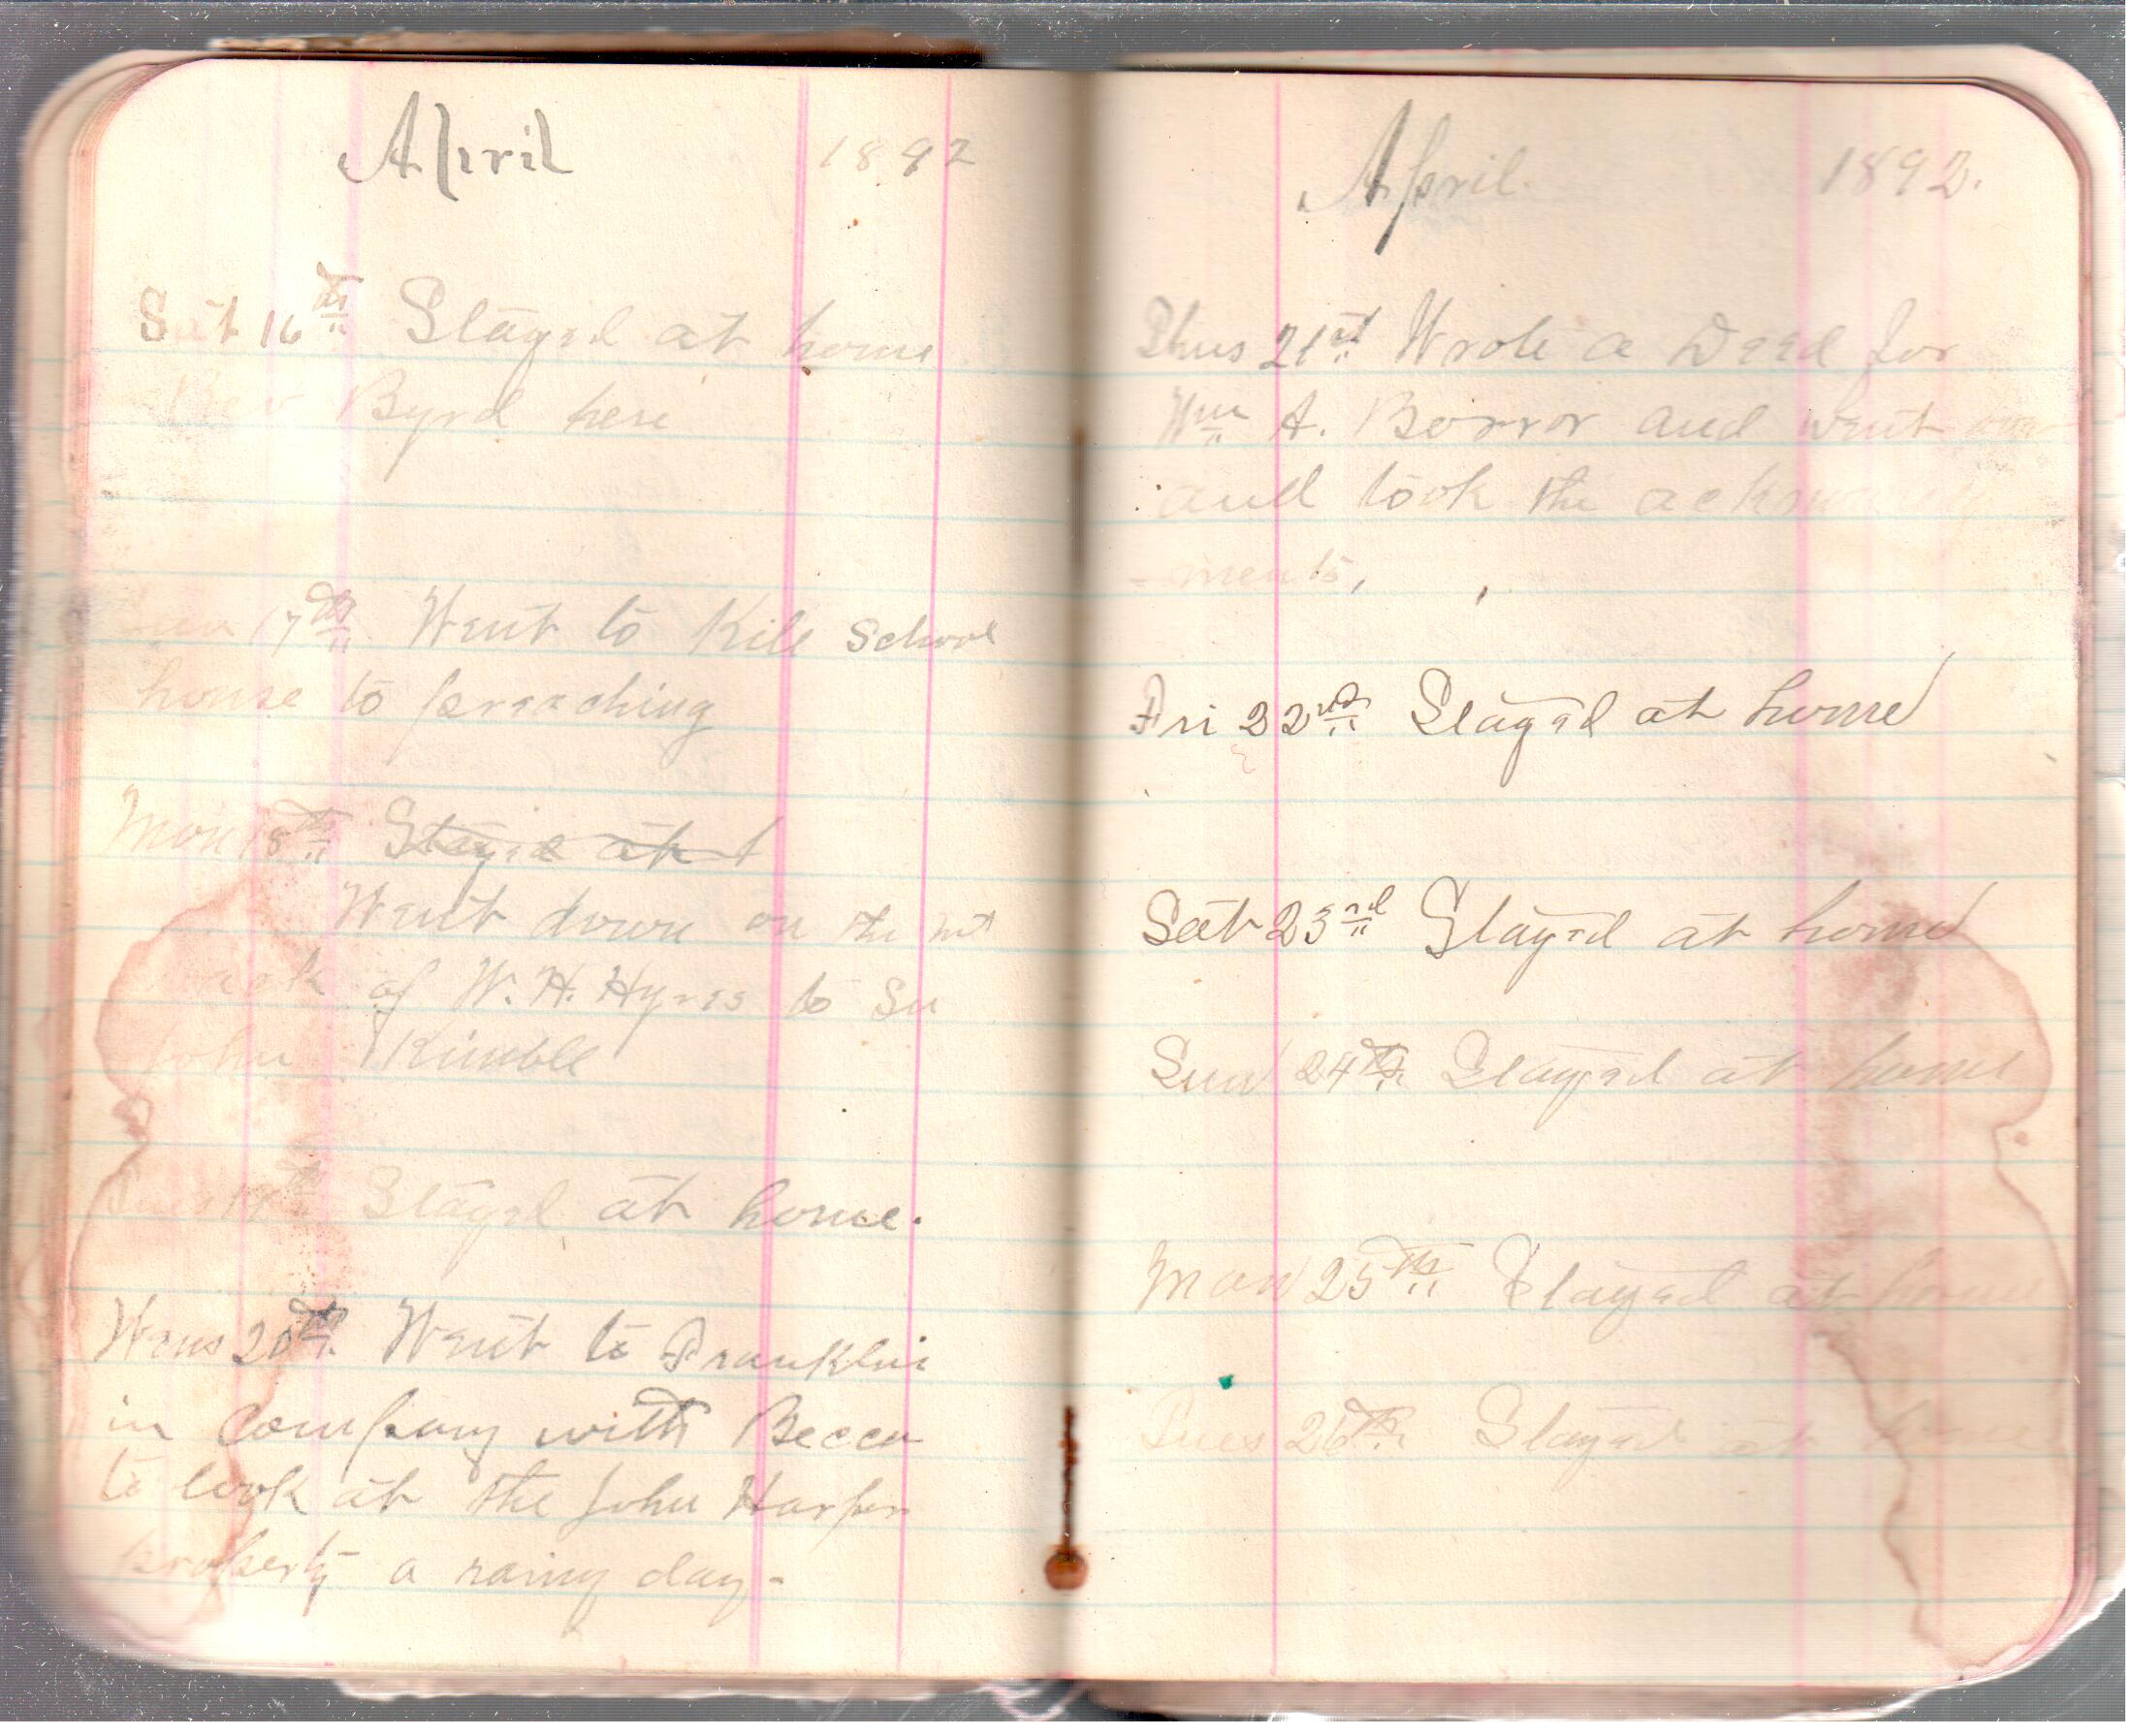 April 1892
Sat 16th Stayed at home
Rev Byrd here
17th Went to Kile School
house to preaching
Mon 18th Stayed at h
Went down on the mt
back of W. H. Hyres to See
John Kimble
Tues 19th Stayed at home.
Wens 20th Went to Franklin
in Company with Becca
to look at the John Harper
property a rainy day-
April. 1892.
Thus 21st Wrote a Deed for
Wm A. Borror and went
and took the acknowledg
-ments,
Fri 22nd Stayed at home
Sat 23rd Stayed at home
Sun 24th Stayed at home
Mon 25th Stayed at home
Tues 26th Stayed at home